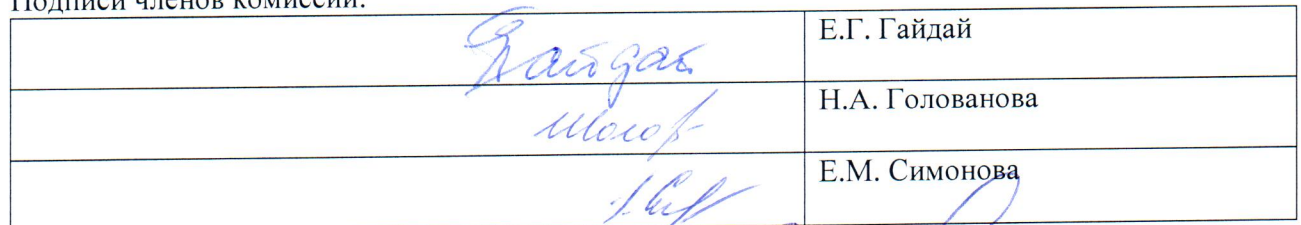 Подписи членов комиссии:
Гайдай Е.Г. Гайдай
Н.А. Голованова
Е.М. Симонова